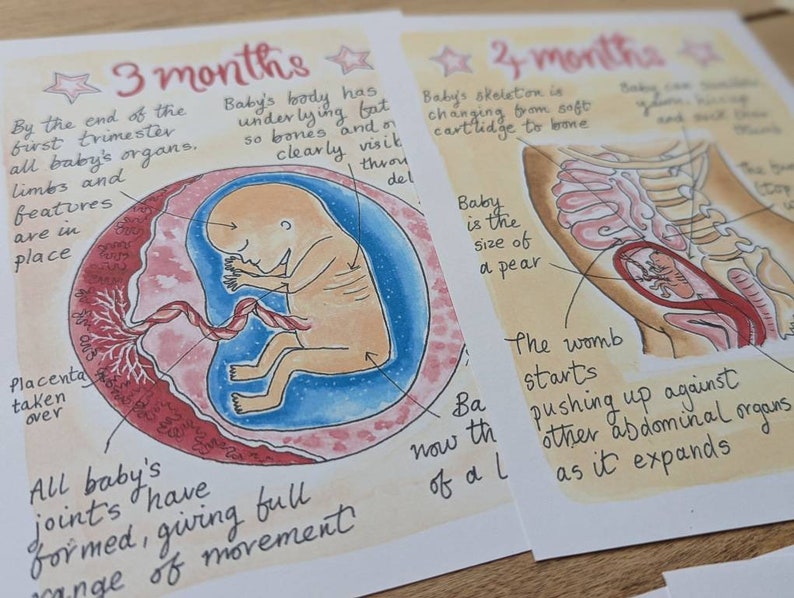 3 months
By the end of the
first trimester
all baby's organs.
limbs and
features
are in
place
Baby's body has
underlying fat
so bones and
clearly
Placenta
taken
over
All baby's
joint's have
formed, giving full
range of movement
Ba
now th
of a l
4 months
Baby's skeleton is
changing from soft
cartlidge to bone
Baby can
yawn, hiccup
and suck their
thumb
Baby
is the
size of
a pear
The womb
starts
pushing up against
other abdominal organs
as it expands